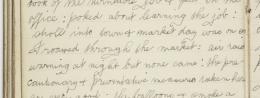 book of the
office : poked about learning the job :
stole into town & market day was on so
I roamed through the market : air raid
warning at night but none came : the pre-
cautionary & preventative measures taken here
the balloons & smoke a